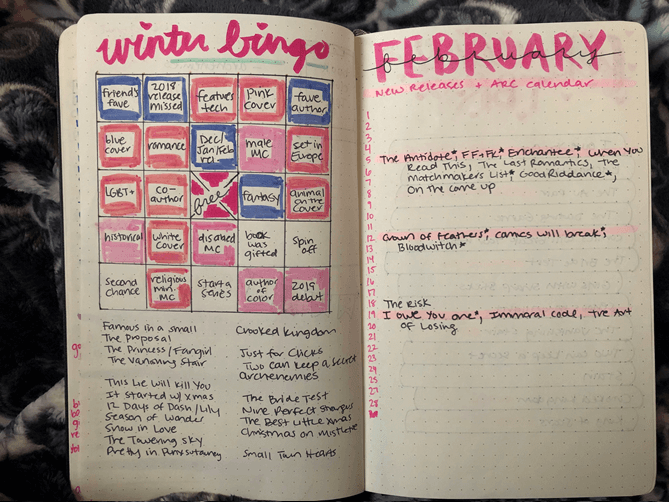 winter bingo
friend's fave
2018 release missed
features tech
pink cover
fave author
blue cover
romance
Dec/Jan/Feb
male MC
set in Europe
LGBT+
co-author
free
fantasy
animal on the cover
historical
white cover
disabled MC
book was gifted
spin off
second chance
religious min. MC
start a series
author of color
2019 debut
Famous in a small
The Proposal
The Princess/Fangirl
The Vanishing Stair
This Lie Will Kill You
It Started w/ Xmas
12 Days of Dash/Lily
Season of Wonder
Snow in Love
The Towering Sky
Pretty in Punxsutawney
Crooked Kingdom
Just for Clicks
Two Can Keep a Secret
archenemies
The Bride Test
Nine Perfect Strangers
The Best Little Xmas
Christmas on Mistletoe
Small Town Hearts
FEBRUARY
february
New Releases + ARC calendar
1
2
3
4
5 The Antidote*, FF+FL*, Enchantee*, When You
6 Read This, The Last Romantics, The
7 Matchmakers List*, Good Riddance*,
8 On the Come Up
9
10
11
12 Crown of Feathers*, Comics Will Break*,
13 Bloodwitch*
14
15
16
17
18 The Risk
19 I Owe You One*, Immoral Code, The Art
20 of Losing
21
22
23
24
25
27
28